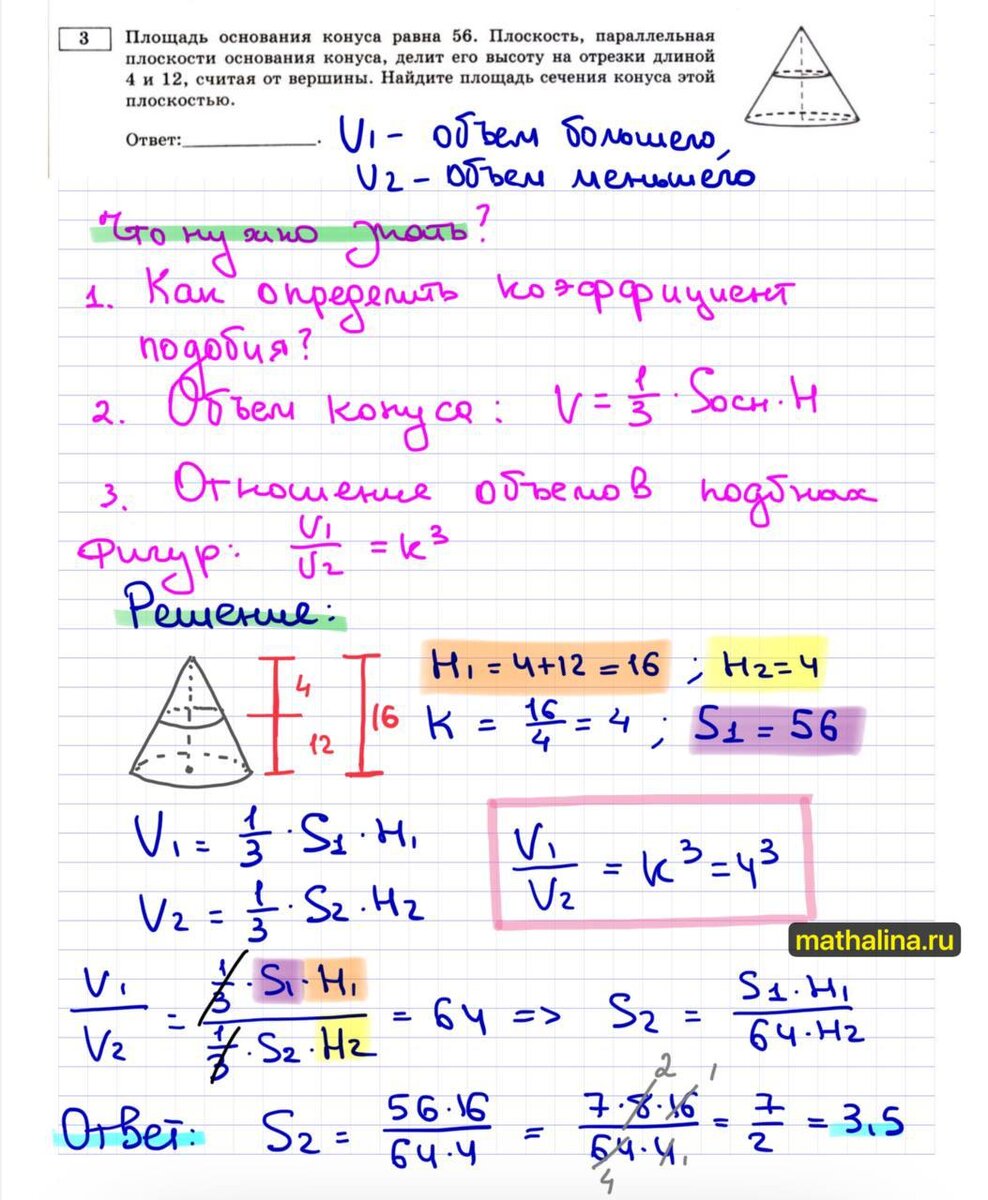 3
Площадь основания конуса равна 56. Плоскость, параллельная
плоскости основания конуса, делит его высоту на отрезки длиной
4 и 12, считая от вершины. Найдите площадь сечения конуса этой
плоскостью.
Ответ:____________.
V1 - объем большего,
V2 - объем меньшего
Что нужно знать?
1. Как определить коэффициент
подобия?
2. Объем конуса: V = 1/3 · Sосн · H
3. Отношение объемов подбных
Фигур: V1/V2 = k³
Решение:
4
12
16
H1 = 4+12 = 16 ; H2 = 4
K = 16/4 = 4 ; S1 = 56
V1 = 1/3 · S1 · H1
V2 = 1/3 · S2 · H2
V1/V2 = k³ = 4³
mathalina.ru
V1/V2 = (1/3 · S1 · H1)/(1/3 · S2 · H2) = 64 => S2 = (S1 · H1)/(64 · H2)
Ответ: S2 = (56 · 16)/(64 · 4) = (7 · 8 · 16)/(64 · 4) = 7/2 = 3,5
2 1
4 1